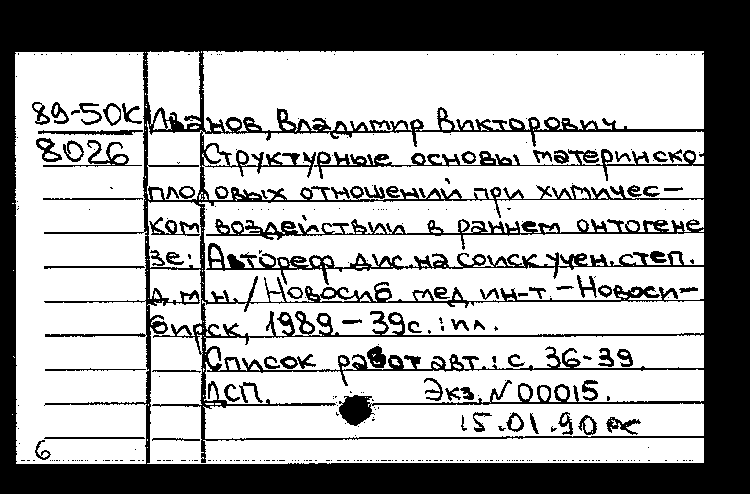 89-50К Иванов, Владимир Викторович.
8026 Структурные основы материнско-
плодовых отношений при химичес-
ком воздействии в раннем онтогене
зе: Автореф. дис. на соиск. учен. степ.
д.м.н. / Новосиб. мед. ин-т. - Новоси-
бирск, 1989. - 39с.: ил.
Список работ авт.: с. 36-39.
ДСП. Экз. N 00015.
15.01.90
6